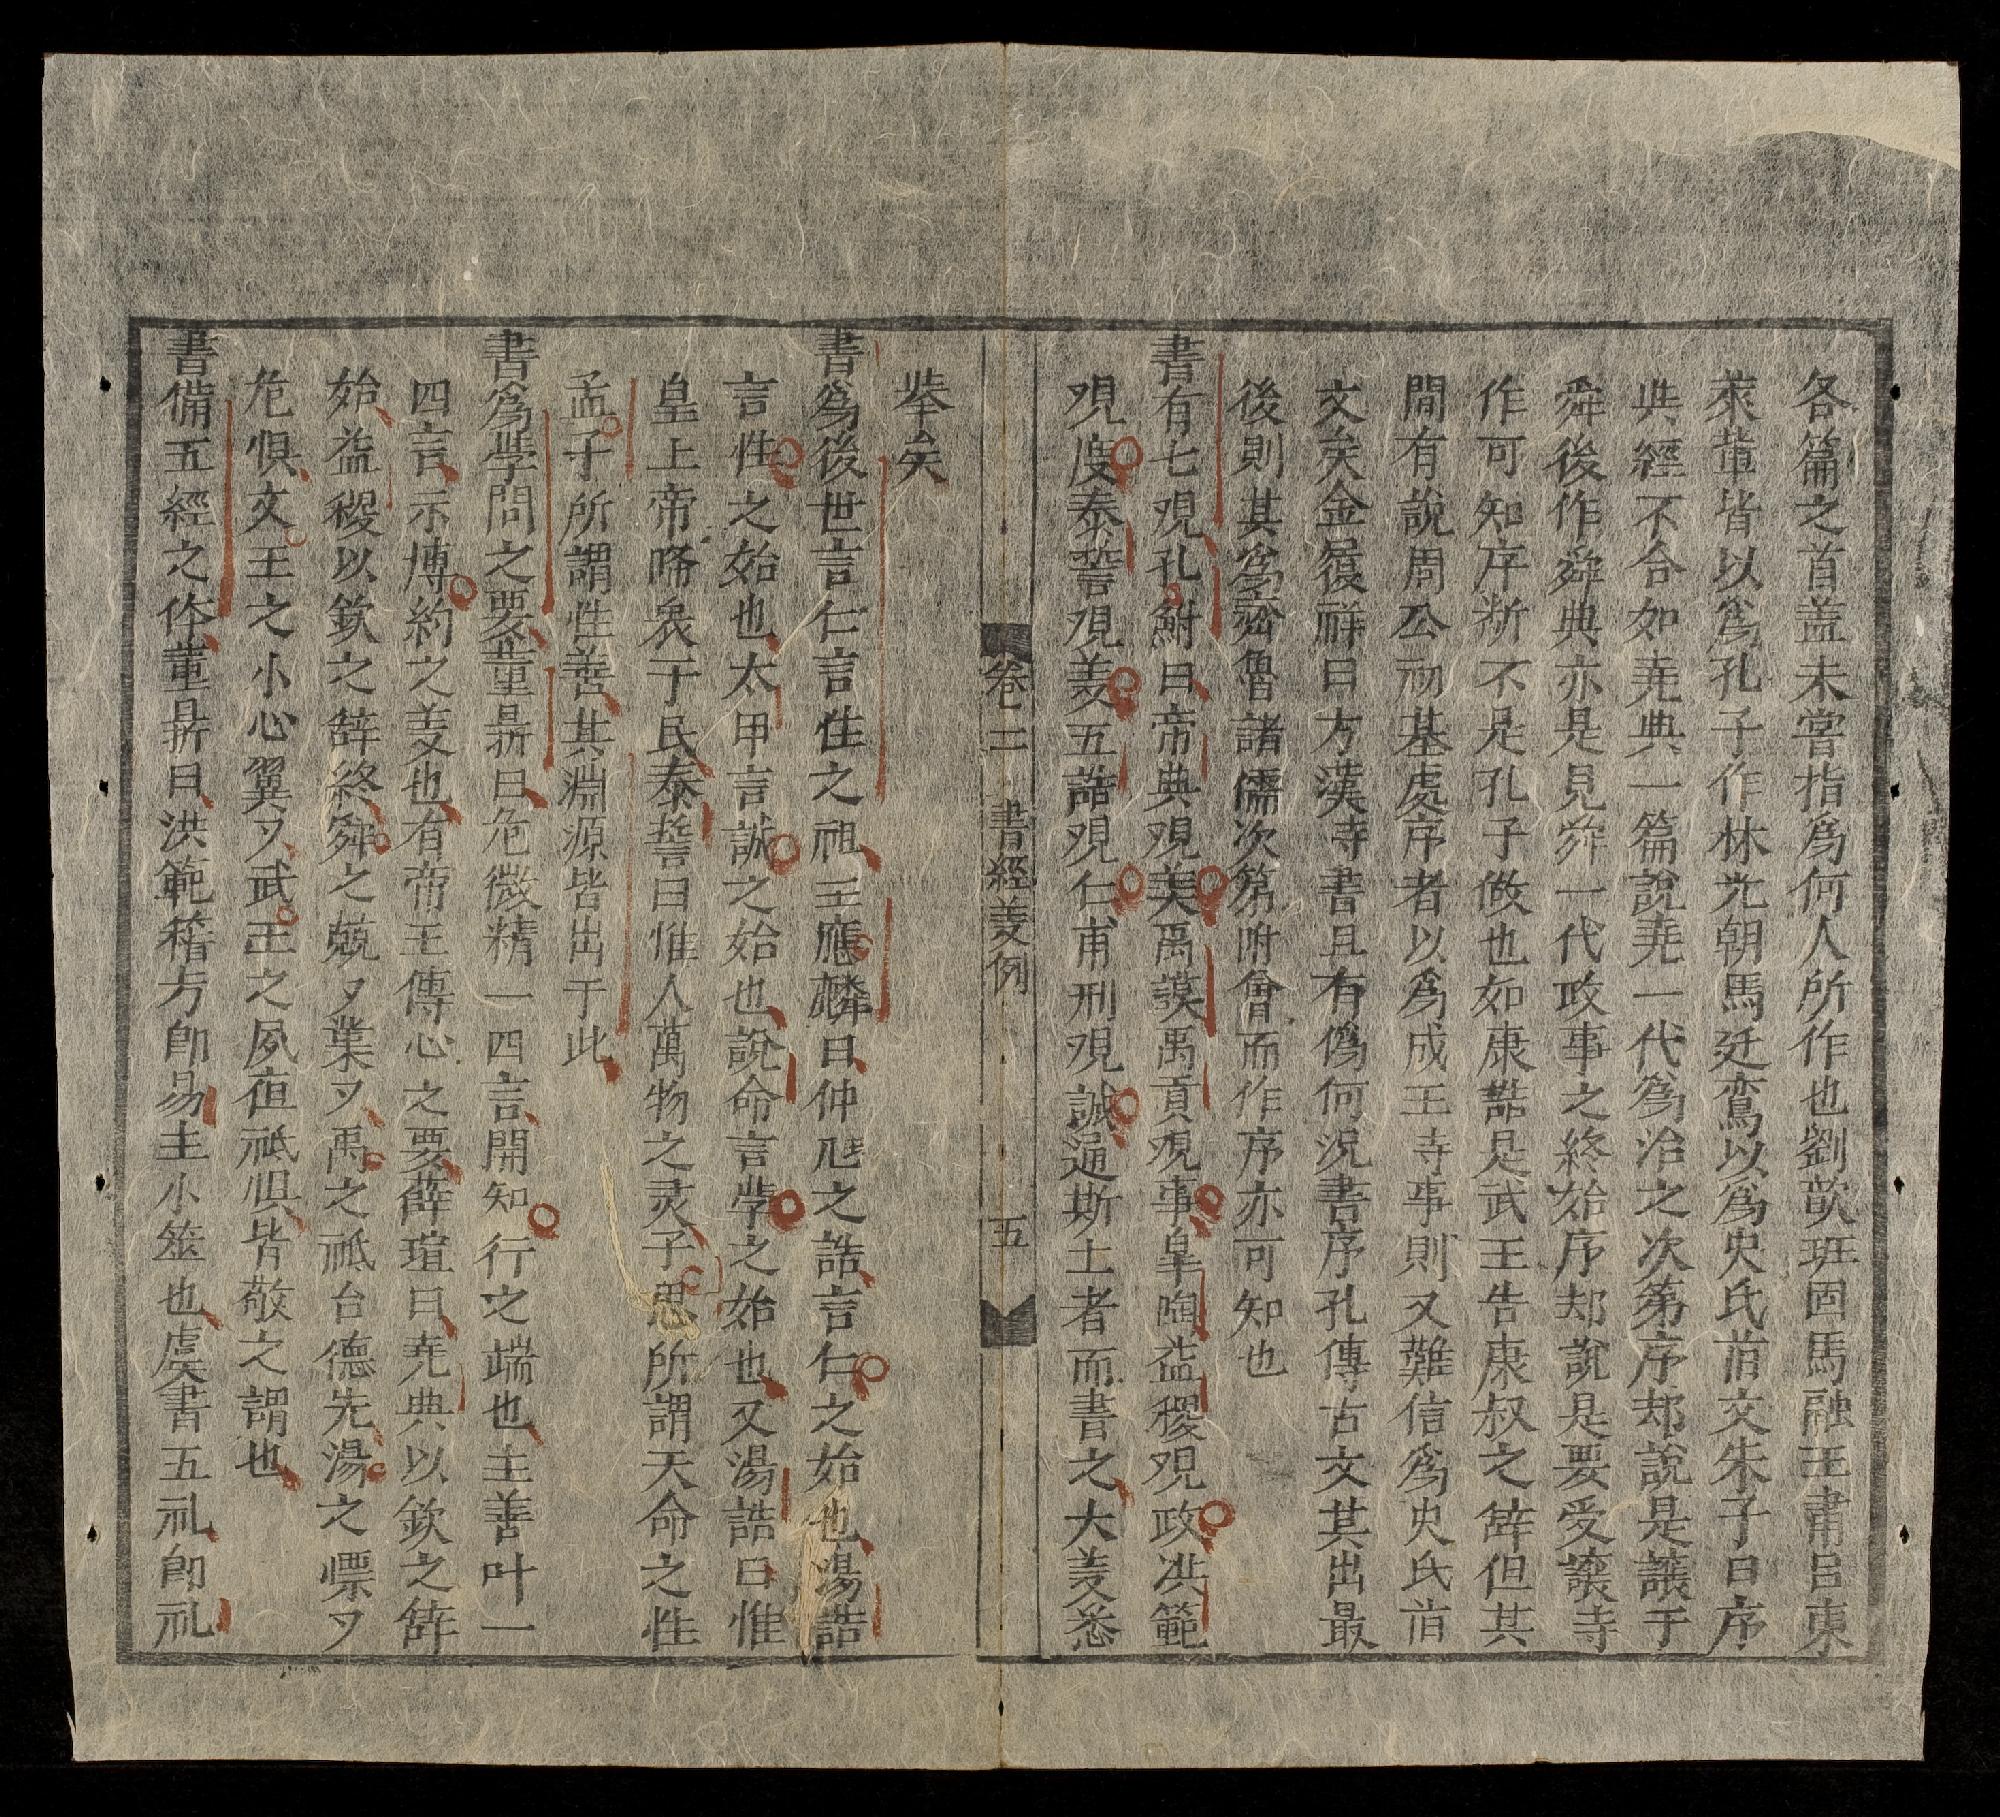 各篇之首盖未嘗指為何人所作也劉歆班固馬融王肅吕東
萊軰皆以為孔子作林光朝馬廷鸞以為史氏舊文朱子曰序
典經不合如尭典一篇說尭一代為治之次第序却說是讓于
舜後作舜典亦是見舜一代政事之終始序却說是要受讓寺
作可知序断不是孔子做也如康誥是武王告康叔之辞但其
間有說周公初基處序者以為成王寺事則又難信為史氏舊
文矣金履祥曰方漢寺書且有偽何况書序孔傳古文其出最
後則其為齊魯諸儒次第附會而作序亦可知也
書有七観孔鮒曰帝典観美禹謨禹貢観事臯陶益稷観政洪範
観度泰誓観義五誥観仁甫刑観誠通斯七者而書之大義悉
卷二　書經義例　五
挙矣
書為後世言仁言性之祖王應麟曰仲虺之誥言仁之始也湯誥
言性之始也太甲言誠之始也說命言斈之始也又湯誥曰惟
皇上帝降衷于民泰誓曰惟人萬物之灵子思所謂天命之性
孟子所謂性善其淵源皆出于此
書為斈問之要董鼎曰危微精一四言開知行之端也主善叶一
四言示博約之義也有帝王傳心之要薛瑄曰尭典以欽之辞
始益稷以欽之辞終舜之兢〻業〻禹之祗台德先湯之慄〻
危惧文王之小心翼〻武王之夙夜祗惧皆敬之謂也
書備五經之作董鼎曰洪範稽疑即易主卜筮也虞書五礼即礼